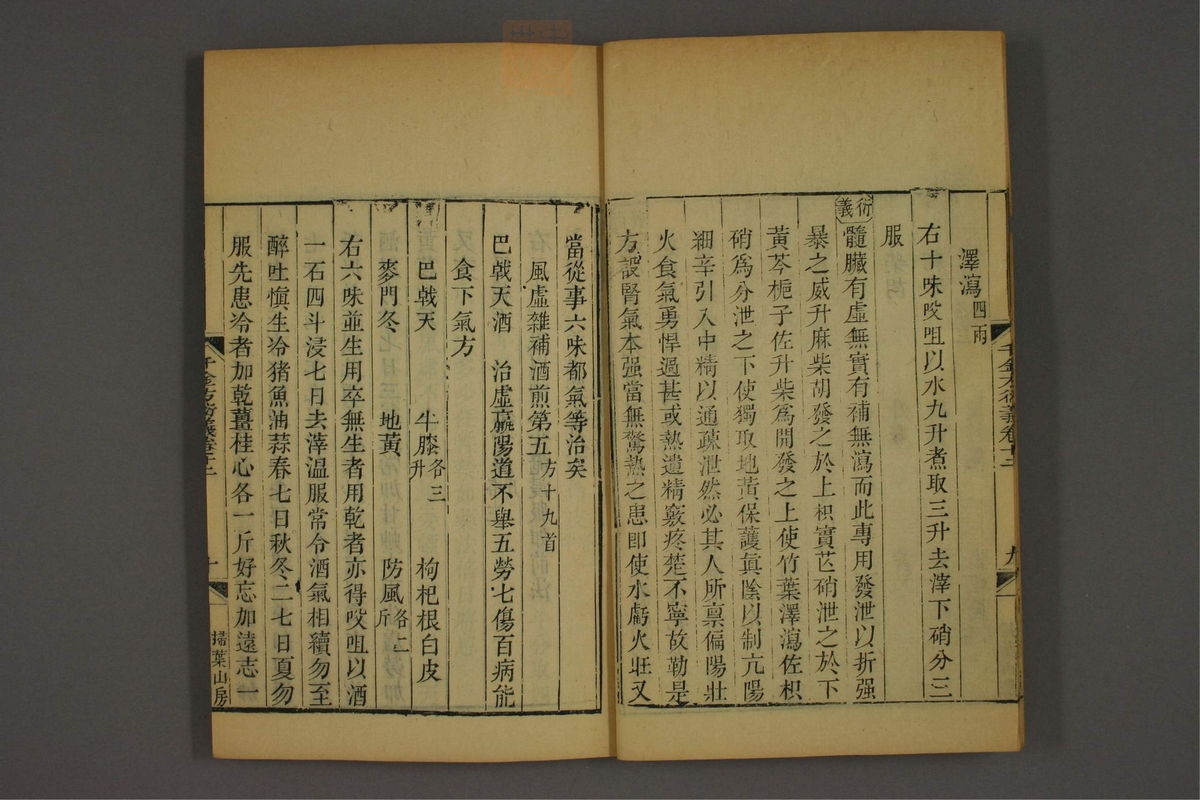 澤瀉四兩
右十味㕮咀以水九升煮取三升去滓下硝分三
服
衍義
髓臟有虛無實有補無瀉而此專用發泄以折强
暴之威升麻柴胡發之於上枳實芒硝泄之於下
黃芩梔子佐升柴爲開發之上使竹葉澤瀉佐枳
硝爲分泄之下使獨取地黃保護眞陰以制亢陽
細辛引入中精以通疎泄然必其人所禀偏陽壯
火食氣勇悍過甚或熱遺精竅疼楚不寧故勒是
方設腎氣本强當無驚熱之患卽使水虧火旺又
千金方衍義卷十二
九
當從事六味都氣等治矣
風虛雜補酒煎第五方十九首
巴戟天酒 治虛羸陽道不舉五勞七傷百病能
食下氣方
巴戟天 牛膝各三升 枸杞根白皮
麥門冬 地黃 防風各二斤
右六味並生用卒無生者用乾者亦得㕮咀以酒
一石四斗浸七日去滓温服常令酒氣相續勿至
醉吐愼生冷猪魚油蒜春七日秋冬二七日夏勿
服先患冷者加乾薑桂心各一斤好忘加遠志一
千金方衍義卷十二
掃葉山房